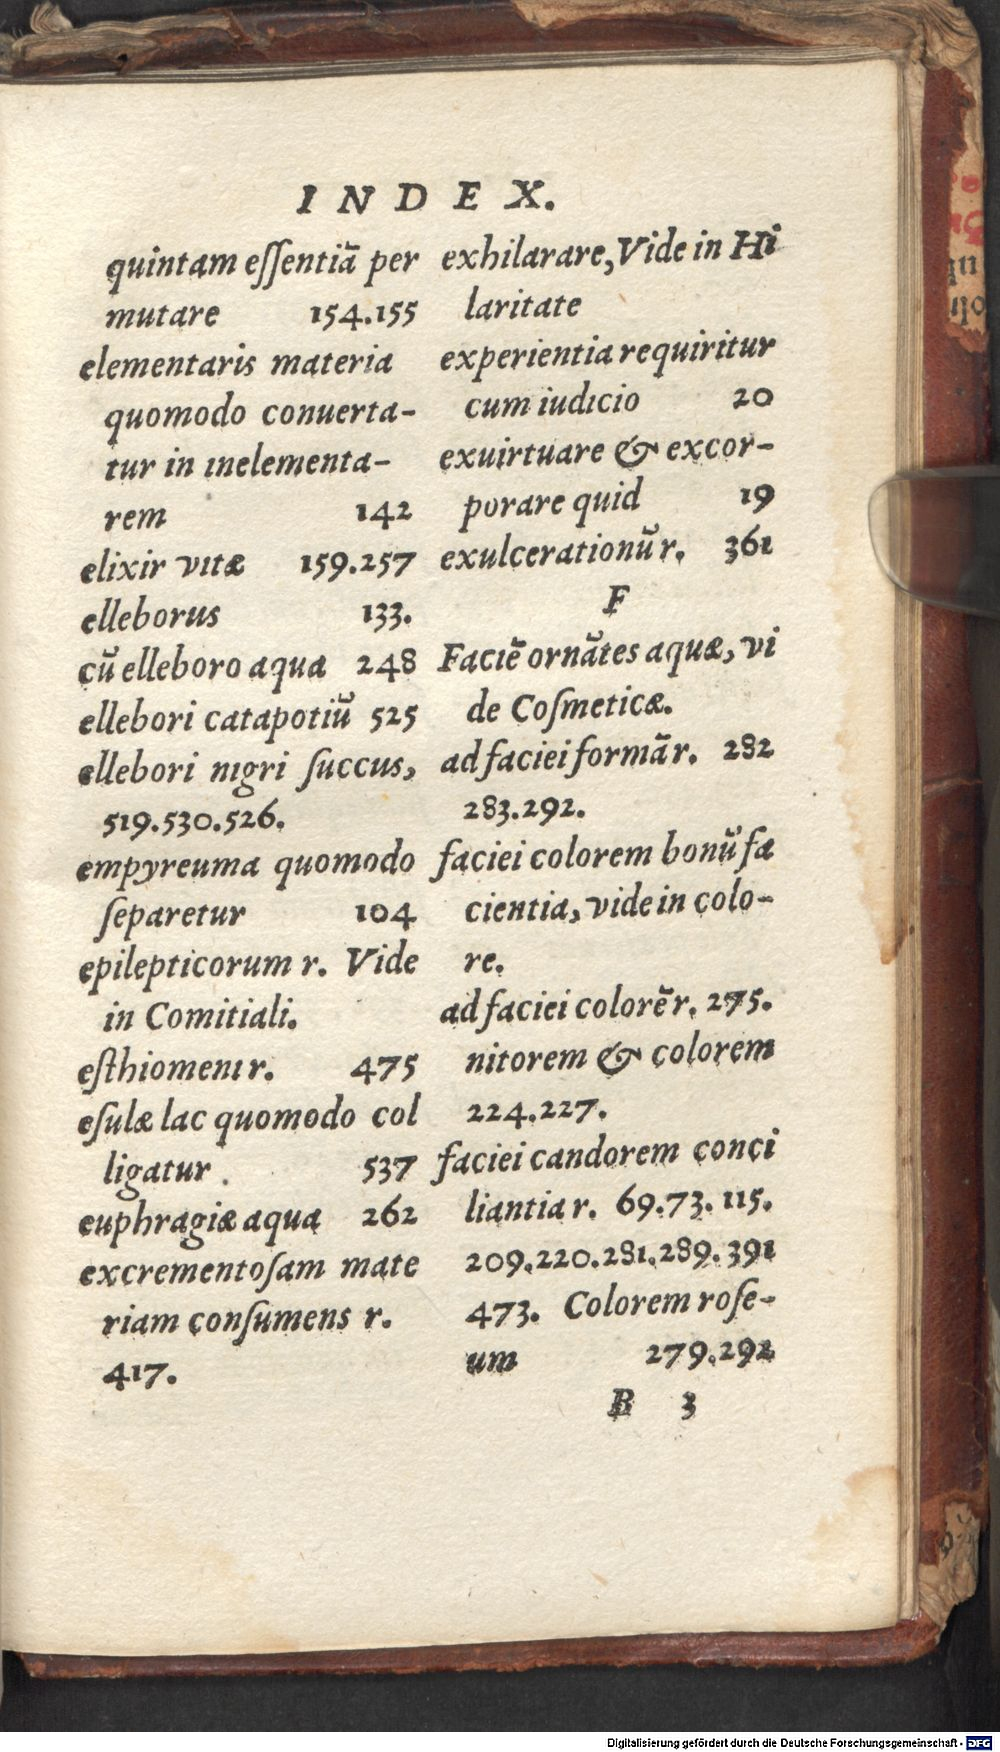 INDEX.
quintam eſſentiā per
mutare 154.155
elementaris materia
quomodo conuerta-
tur in inelementa-
rem 142
elixir vitæ 159.257
elleborus 133.
cū elleboro aqua 248
ellebori catapotiū 525
ellebori nigri ſuccus,
519.530.526.
empyreuma quomodo
ſeparetur 104
epilepticorum r. Vide
in Comitiali.
eſthiomeni r. 475
eſulæ lac quomodo col
ligatur 537
euphragiæ aqua 262
excrementoſam mate
riam conſumens r.
417.
exhilarare, Vide in Hi
laritate
experientia requiritur
cum iudicio 20
exuirtuare & excor-
porare quid 19
exulcerationū r. 361
F
Faciē ornātes aquæ, vi
de Coſmeticæ.
ad faciei formā r. 282
283.292.
faciei colorem bonū fa
cientia, vide in colo-
re.
ad faciei colorē r. 275.
nitorem & colorem
224.227.
faciei candorem conci
liantia r. 69.73.115.
209.220.281.289.391
473. Colorem roſe-
um 279.292
B 3
Digitalisierung gefördert durch die Deutsche Forschungsgemeinschaft - DFG